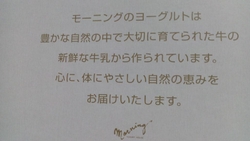 モーニングのヨーグルトは
豊かな自然の中で大切に育てられた牛の
新鮮な牛乳から作られています。
心に、体にやさしい自然の恵みを
お届けいたします。
morning